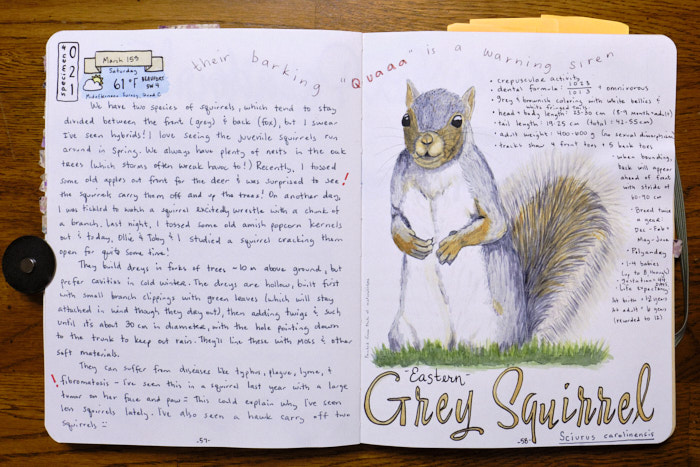 their barking "Quaaa" is a warning siren
specimen #
021
March 15th
Saturday
61 °F
SW 9
We have two species of squirrels, which tend to stay
divided between the front (grey) & back (fox), but I swear
I've seen hybrids! I love seeing the juvenile squirrels run
around in Spring. We always have plenty of nests in the oak
trees (which storms often wreak havoc to!) Recently, I tossed
some old apples out front for the deer & was surprised to see
the squirrels carry them off and up the trees! On another day,
I was tickled to watch a squirrel excitedly wrestle with a chunk of
a branch. Last night, I tossed some old amish popcorn kernels
out & today, Ollie & Toby & I studied a squirrel cracking them
open for quite some time!
They build dreys in forks of trees ~10 m above ground, but
prefer cavities in cold winter. The dreys are hollow, built first
with small branch clippings with green leaves (which will stay
attached in wind though they dry out), then adding twigs & such
until it's about 30 cm in diameter, with the hole pointing down
to the trunk to keep out rain. They'll line these with moss & other
soft materials.
They can suffer from diseases like typhus, plague, lyme, &
! fibromatosis - I've seen this in a squirrel last year with a large
tumor on her face and paw :( This could explain why I've seen
less squirrels lately. I've also seen a hawk carry off two
squirrels :(
!
-57-
• crepuscular activity
• dental formula: 1023 / 1013 • omnivorous
• Grey & brownish coloring with white bellies & white fringed tails
• head + body length: 23-30 cm
• tail length: 19-25 cm (total: 42-55 cm)
• adult weight: 400-600 g (no sexual dimorphism)
• tracks show 4 front toes + 5 back toes
• when bounding, back will appear ahead of front with stride of 60-90 cm
• Breed twice a year
Dec - Feb +
May - June
• Polyandry
• 1-4 babies
(up to 8, though)
• Gestation: 44 days
• Life expectancy
At birth = 1-2 years
At adult = 6 years
(recorded to 12)
-Eastern-
Grey Squirrel
-58-
Sciurus carolinensis